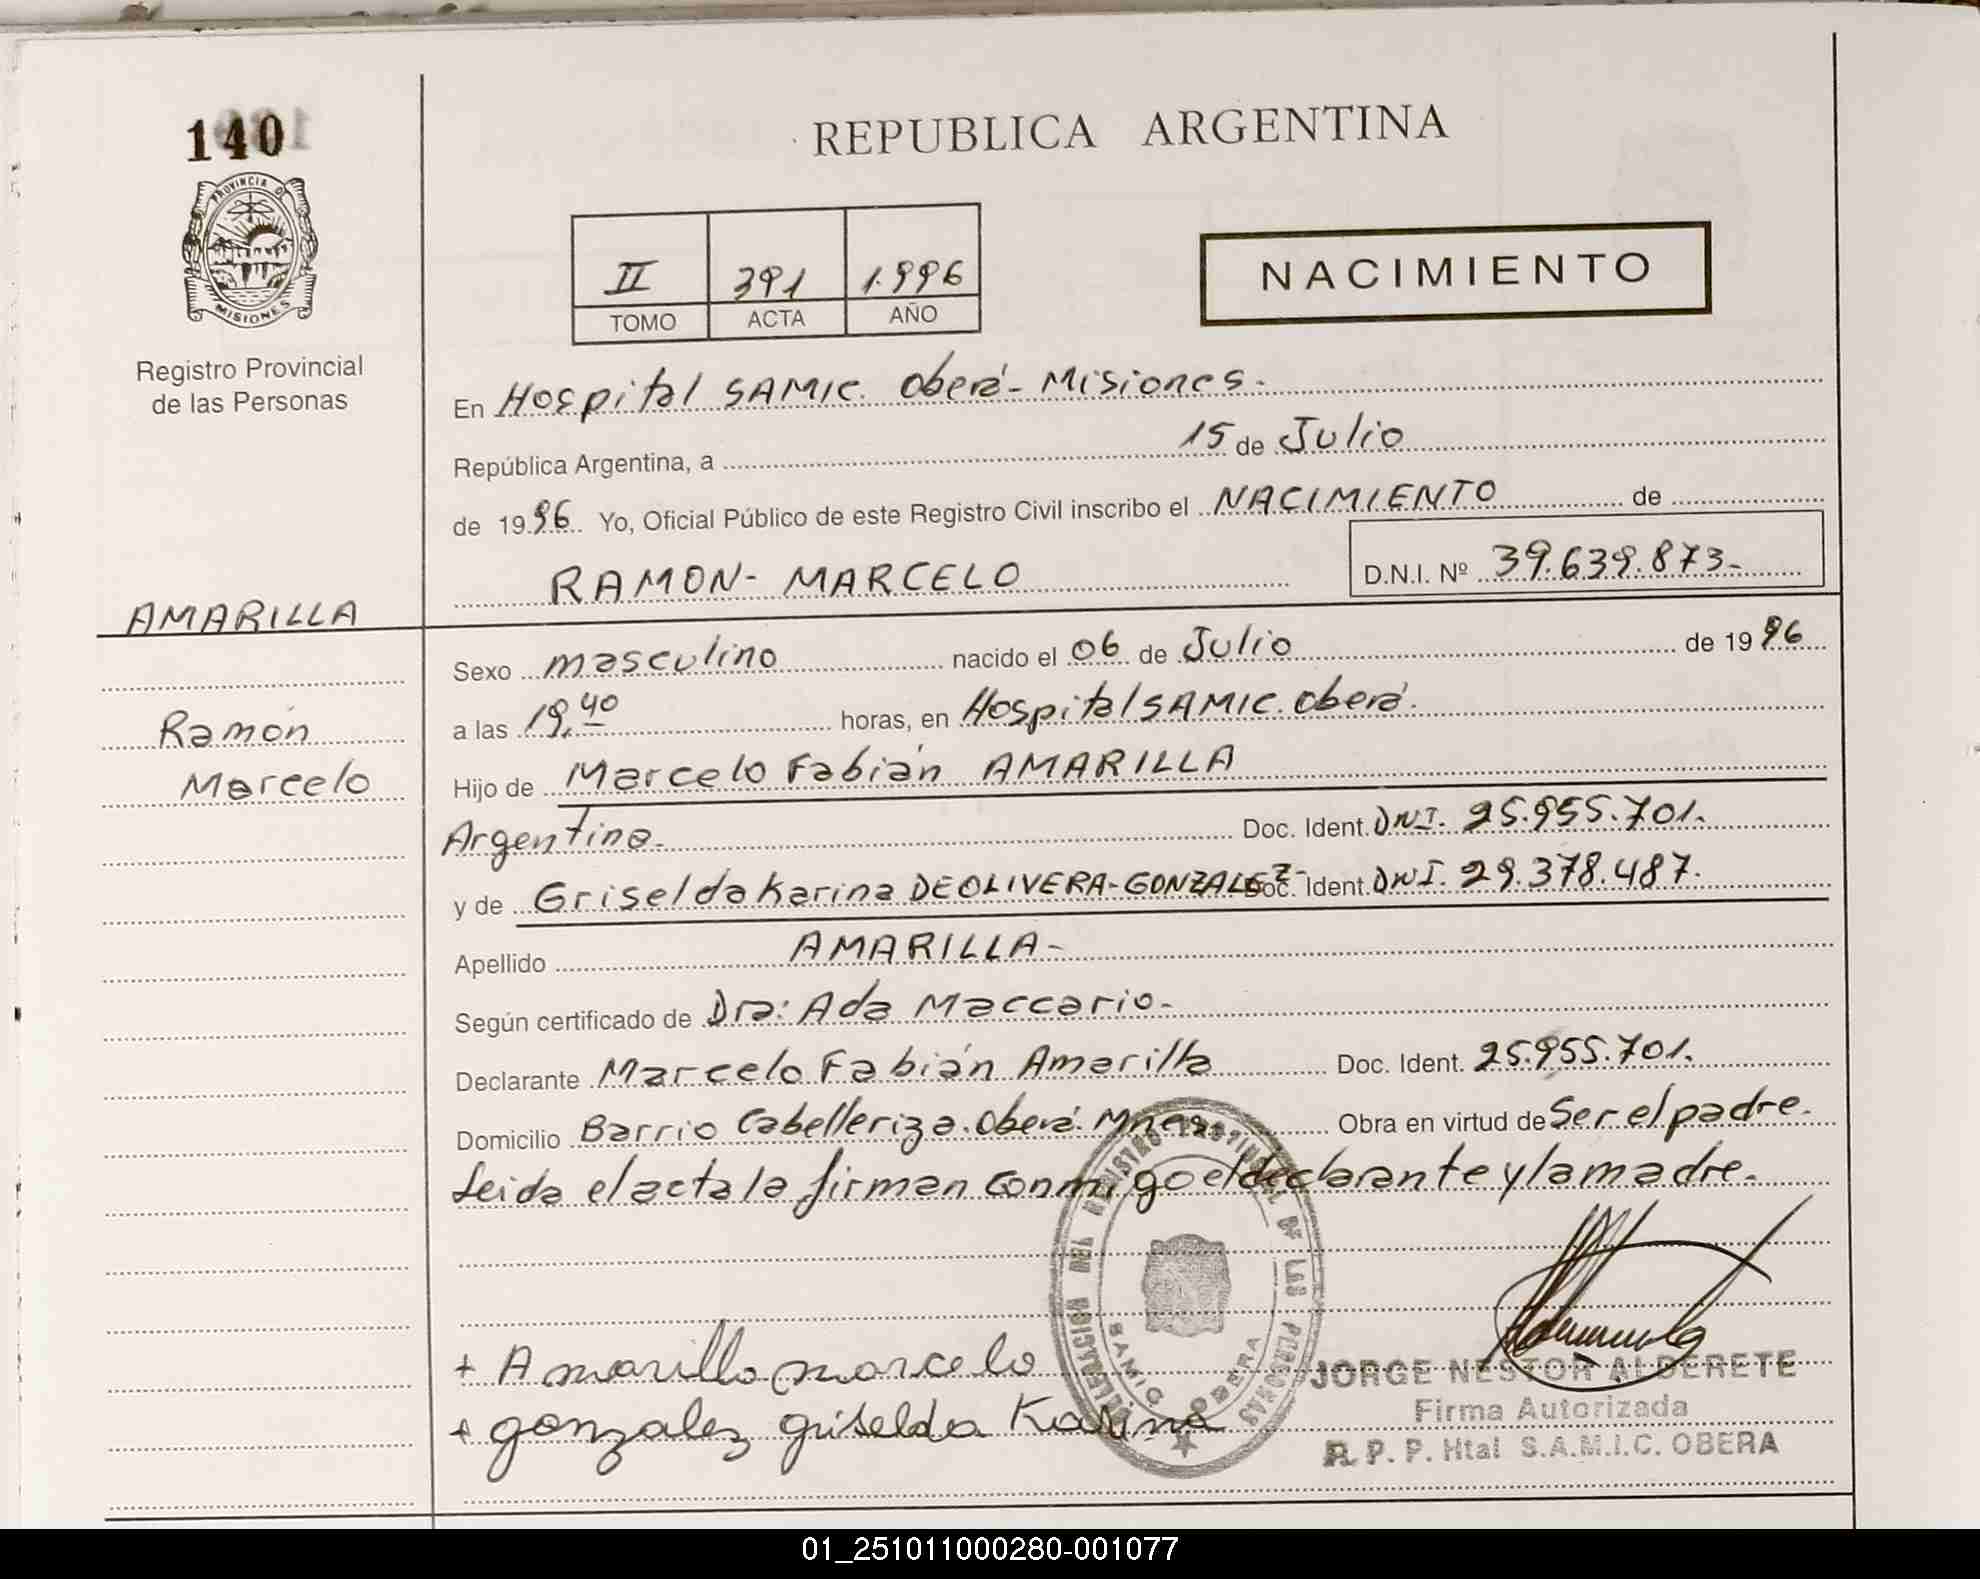 140
REPUBLICA ARGENTINA
PROVINCIA DE MISIONES
Registro Provincial
de las Personas
II 391 1.996
TOMO ACTA AÑO
NACIMIENTO
En Hospital SAMIC. Oberá - Misiones.
República Argentina, a 15 de Julio
de 1996. Yo, Oficial Público de este Registro Civil inscribo el NACIMIENTO de
RAMON - MARCELO D.N.I. Nº 39.639.873.-
AMARILLA
Ramón
Marcelo
Sexo masculino nacido el 06 de Julio de 1996
a las 19,40 horas, en Hospital SAMIC. Oberá.
Hijo de Marcelo Fabián AMARILLA
Argentina. Doc. Ident. DNI. 25.955.701.
y de Griselda Karina DEOLIVERA-GONZALEZ- Doc. Ident. DNI. 29.378.487.
Apellido AMARILLA-
Según certificado de Dra: Ada Maccario-
Declarante Marcelo Fabián Amarilla Doc. Ident. 25.955.701.
Domicilio Barrio Caballeriza. Oberá. Mnes. Obra en virtud de Ser el padre.
Leida el acta la firman conmigo el declarante y la madre.
DELEGACION DEL REGISTRO PROVINCIAL DE LAS PERSONAS
SAMIC. OBERA
+ Amarilla marcelo
+ gonzalez griselda Karina
JORGE NESTOR ALDERETE
Firma Autorizada
R. P. P. Htal S.A.M.I.C. OBERA
01_251011000280-001077